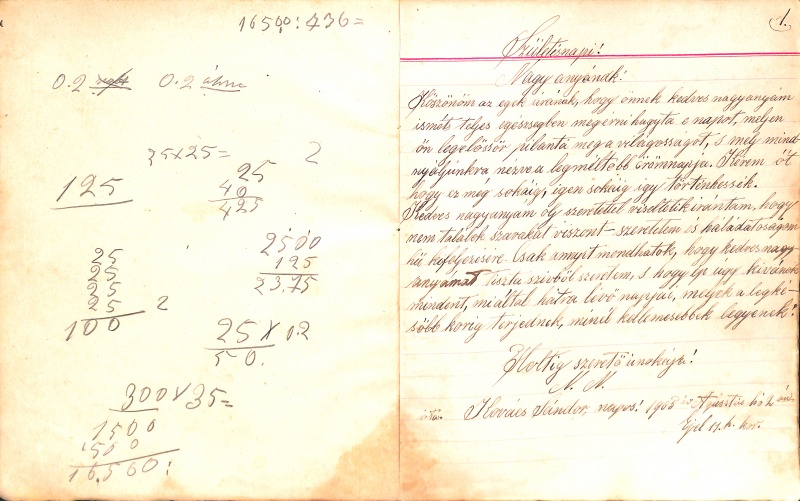 16500:436=
0.2 0.2
35x25= 2
125
25
40
425
25
25
25
25 2
100
2500
125
23,75
25 x 0.2
50.
300 x 35=
1500
500
16,500:
1.
Születésnapi!
Nagyanyának!
Köszönöm az egek urának, hogy önnek kedves nagyanyám
ismét teljes egésségben megérni hagyta e napot, melyen
ön legelőssör pilantá meg a világosságot, s mely mind-
nyájunkra nézve a legméltóbb örömnapja. Kérem őt
hogy ez még sokáig, igen sokáig így történhessék.
Kedves nagyanyám oly szeretettel viseltetik irántam, hogy
nem találok szavakat viszont-szeretetem és háládatoságom
hű kifejezésére. Csak annyit mondhatok, hogy kedves nagy-
anyámat tiszta szívből szeretem, s hogy úgy kívánok
mindent, miáltal hátra lévő napjai, melyek a legké-
sőbb korig terjednek, minél kellemesebbek legyenek!
Holtig szerető unokája!
N. N.
írta. Kovács Sándor, napos! 1908 Agusztus hó 2
Éjel 11. h. kor.